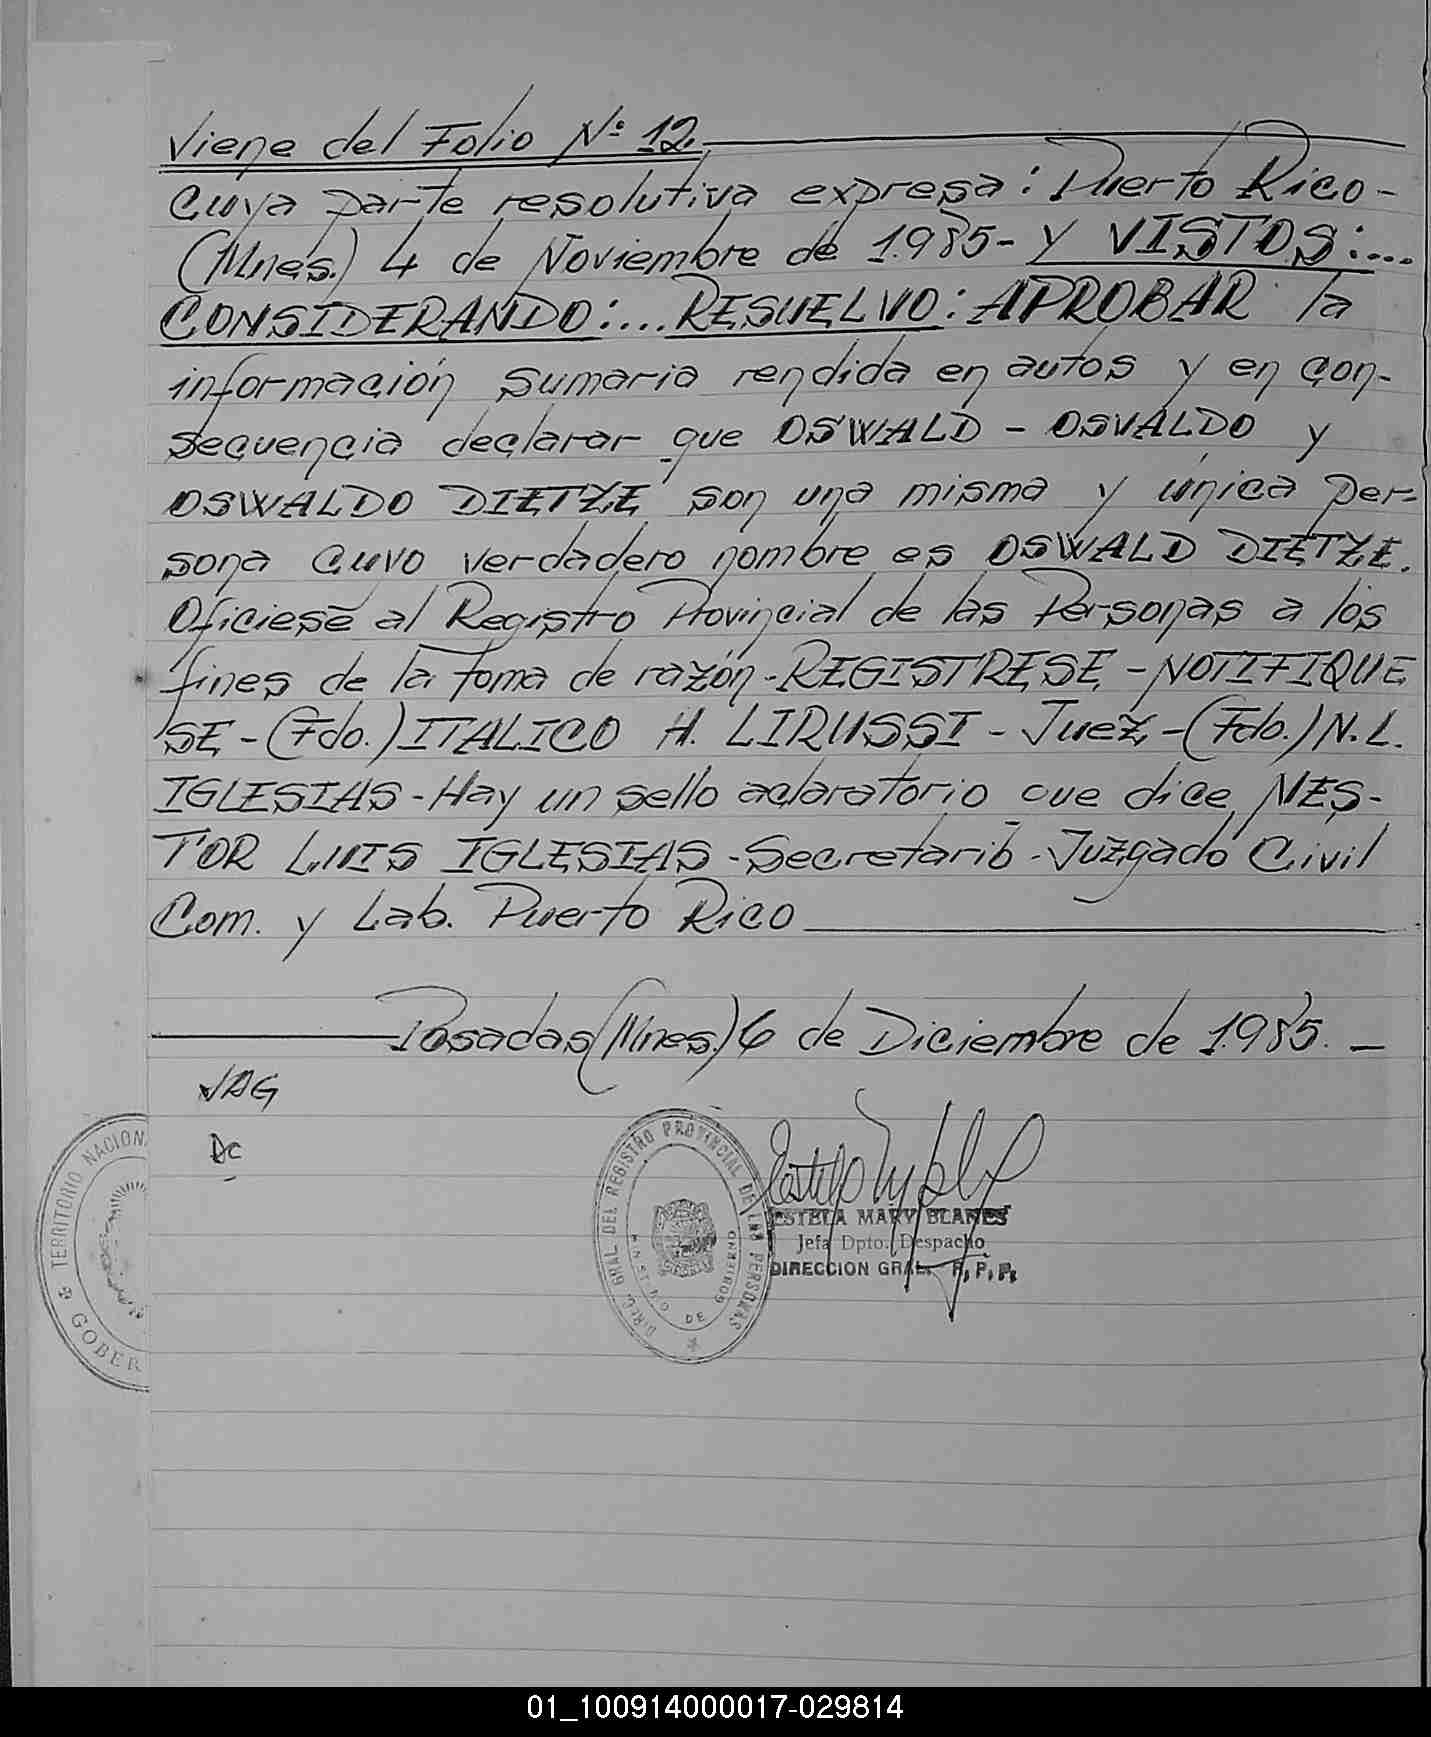 Viene del Folio Nº 12.
Cuya parte resolutiva expresa: Puerto Rico-
(Mnes.) 4 de Noviembre de 1.985- y VISTOS:...
CONSIDERANDO:... RESUELVO: APROBAR la
información sumaria rendida en autos y en con-
secuencia declarar que OSWALD - OSVALDO y
OSWALDO DIETZE son una misma y única per-
sona cuyo verdadero nombre es OSWALD DIETZE.
Oficiese al Registro Provincial de las Personas a los
fines de la toma de razón-REGISTRESE-NOTIFIQUE
SE-(Fdo.) ITALICO H. LIRUSSI - Juez-(Fdo.) N.L.
IGLESIAS-Hay un sello aclaratorio que dice NES-
TOR LUIS IGLESIAS-Secretario-Juzgado Civil
Com. y Lab. Puerto Rico
Posadas (Mnes.) 6 de Diciembre de 1.985.
JAG
DC
TERRITORIO NACIONA
GOBER
DIREC. GRAL DEL REGISTRO PROVINCIAL DE LAS PERSONAS
MINISTERIO DE GOBIERNO
ESTELA MARY BLANES
Jefa Dpto. Despacho
DIRECCION GRAL. R. P. P.
01_100914000017-029814